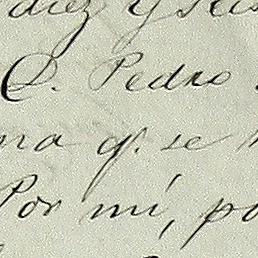 diez y seis
D. Pedro
na q.e se
Por mí, po